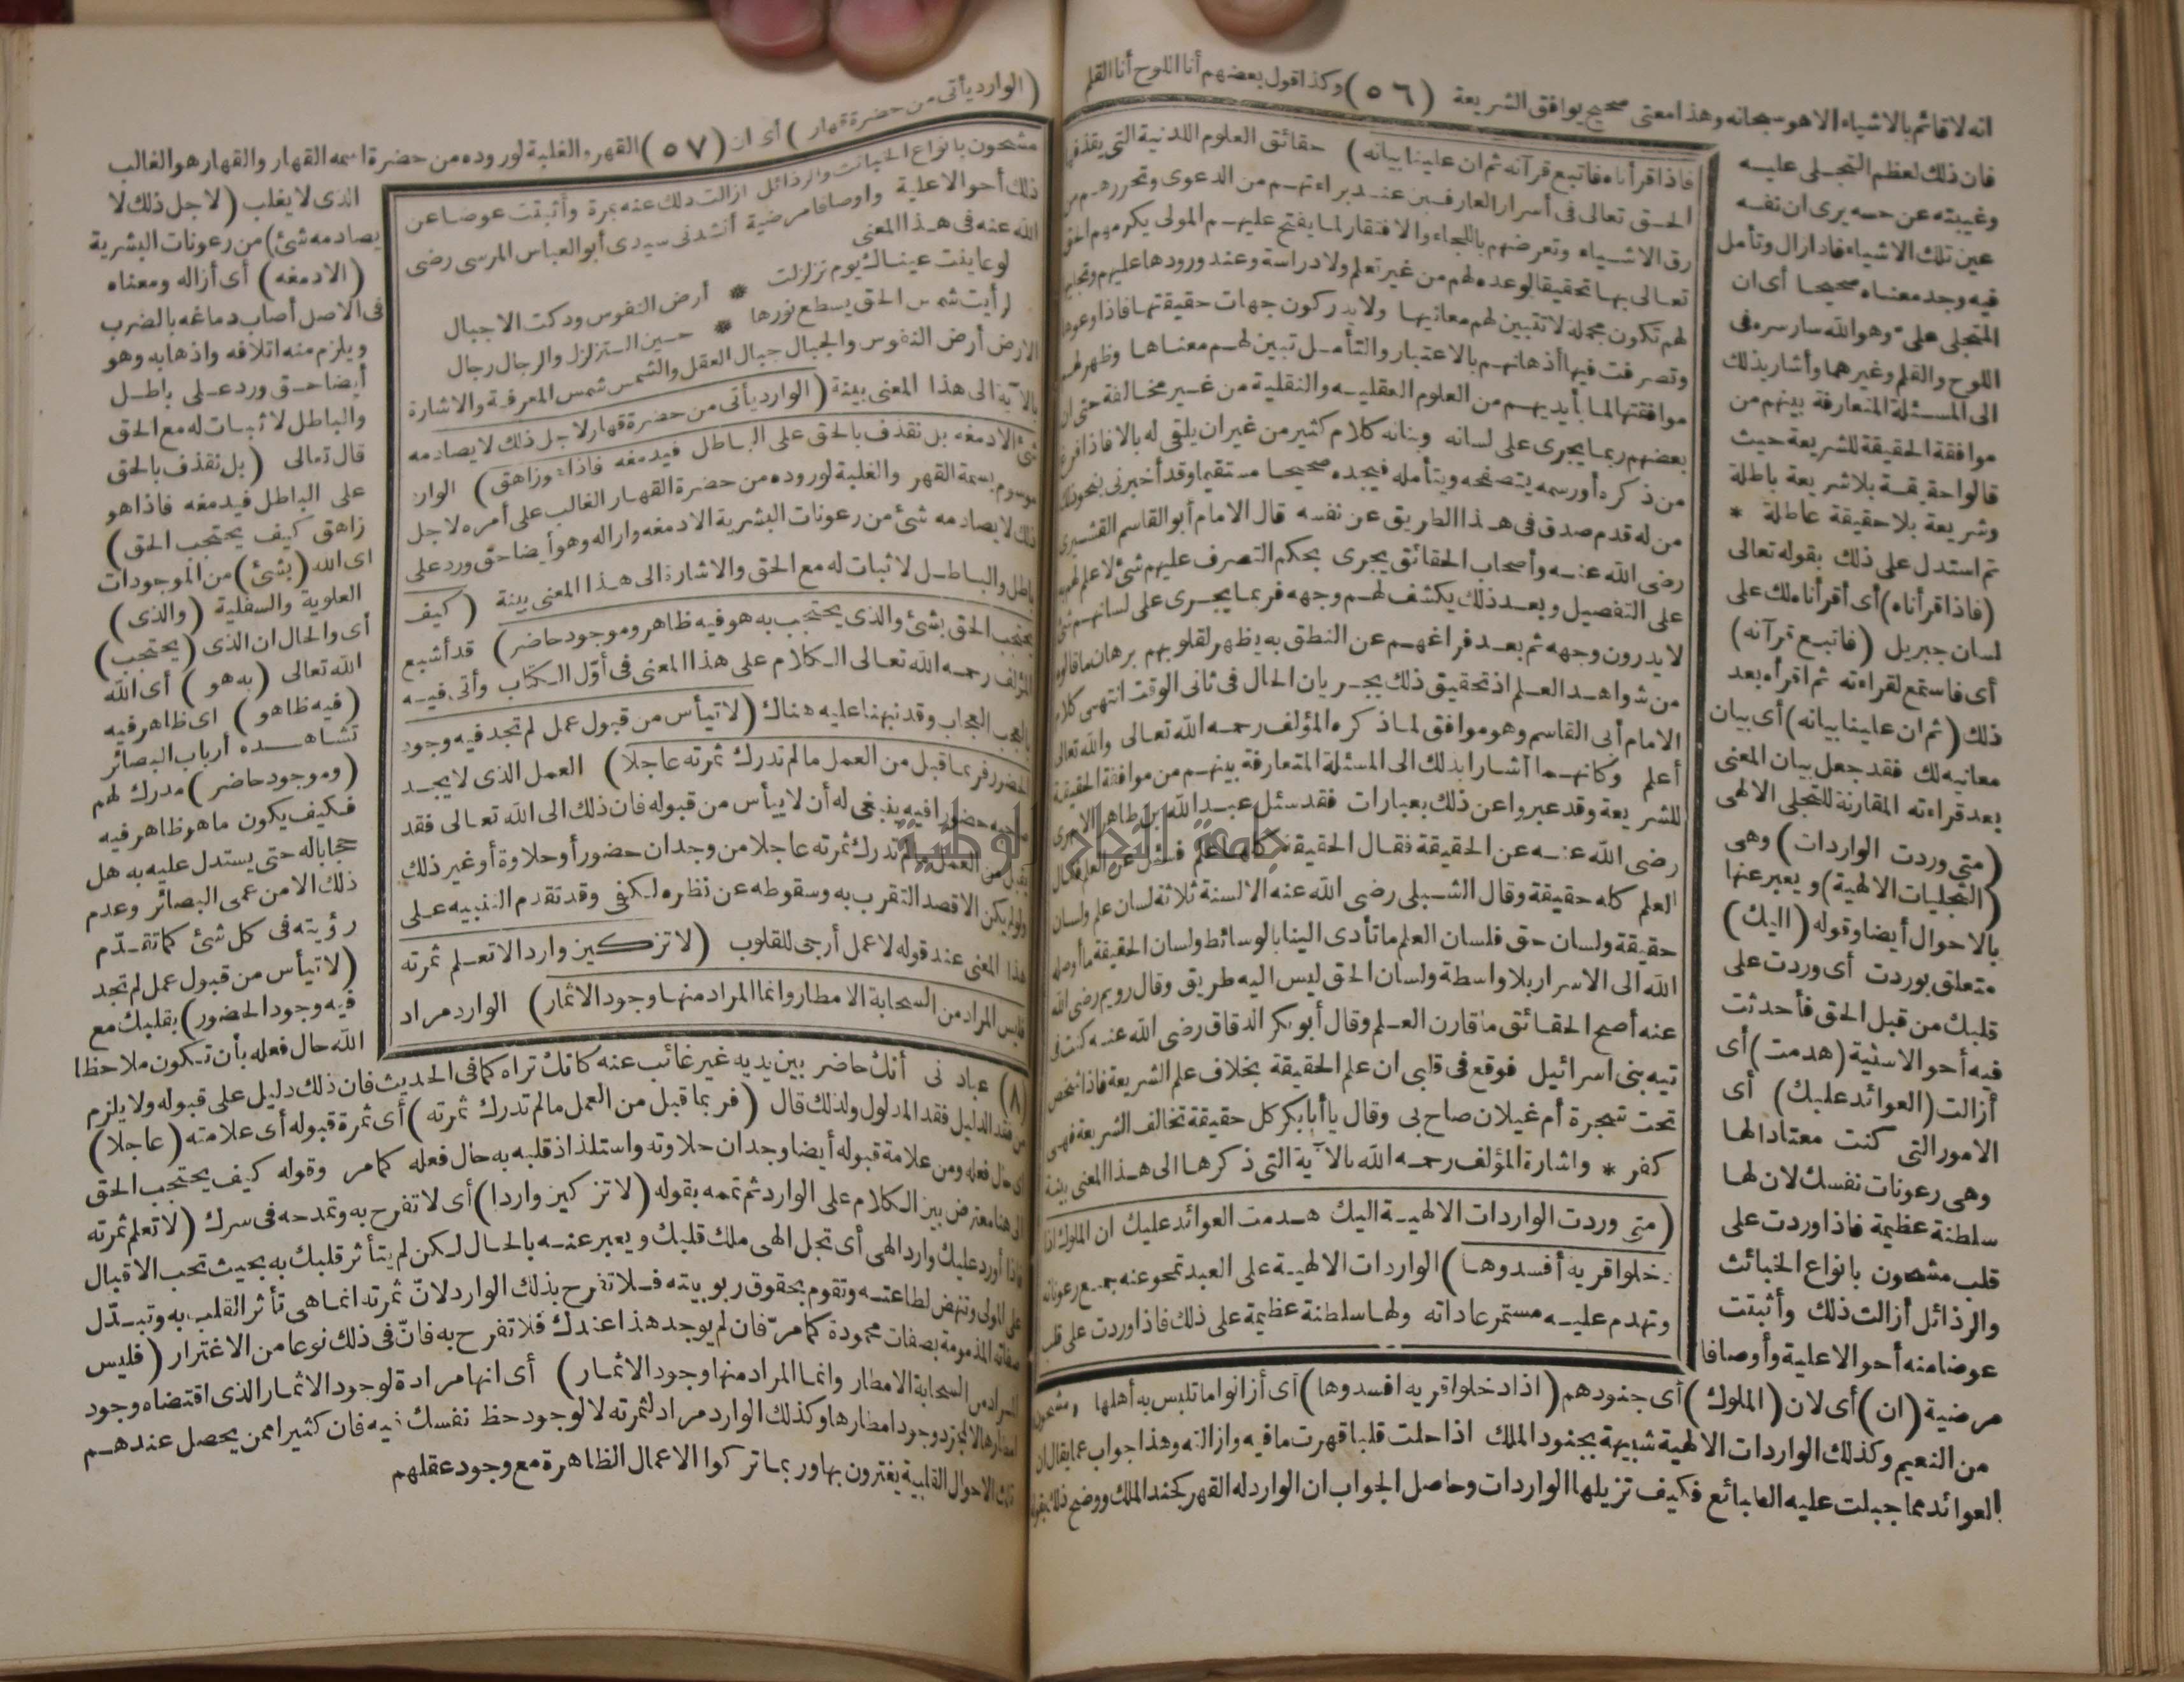 انه لا قائم بالاشياء الا هو سبحانه وهذا معنى صحيح يوافق الشريعة (٥٦) وكذا قول بعضهم أنا اللوح أنا القلم
فان ذلك لعظم التجلى عليه
وغيبته عن حسه يرى ان نفسه
عين تلك الاشياء فاذا زال وتأمل
فيه وجد معناه صحيحا أى ان
المتجلى على وهو الله سار سره فى
اللوح والقلم وغيرهما وأشار بذلك
الى المسئلة المتعارفة بينهم من
موافقة الحقيقة للشريعة حيث
قالوا حقيقة بلا شريعة باطلة
وشريعة بلا حقيقة عاطلة *
ثم استدل على ذلك بقوله تعالى
(فاذا قرأناه) أى أقرأنا ملك على
لسان جبريل (فاتبع قرآنه)
أى فاستمع لقراءته ثم اقرأه بعد
ذلك (ثم ان علينا بيانه) أى بيان
معانيه لك فقد جعل بيان المعنى
بعد قراءته المقارنة للتجلى الالهى
(متى وردت الواردات) وهى
(التجليات الالهية) ويعبر عنها
بالاحوال أيضا وقوله (اليك)
متعلق بوردت أى وردت على
قلبك من قبل الحق فأحدثت
فيه أحوالا سنية (هدمت) أى
أزالت (العوائد عليك) أى
الامور التى كنت معتادا لها
وهى رعونات نفسك لان لها
سلطنة عظيمة فاذا وردت على
قلب مشحون بانواع الخبائث
والرذائل أزالت ذلك وأثبتت
عوضا منه أحوالا علية وأوصافا
فاذا قرأناه فاتبع قرآنه ثم ان علينا بيانه) حقائق العلوم اللدنية التى يقذفها
الحق تعالى فى أسرار العارفين عند براءتهم من الدعوى وتحررهم من
رق الاشياء وتعرضهم باللجاء والافتقار لما يفتح عليهم المولى يكرمهم الحق
تعالى بها تحقيقا لوعده لهم من غير تعلم ولا دراسة وعند ورودها عليهم وتجليها
لهم تكون مجملة لا تتبين لهم معانيها ولا يدركون جهات حقيقتها فاذا وعوها
وتصرفت فيها أذهانهم بالاعتبار والتأمل تبين لهم معناها وظهر لهم
موافقتها لما بأيديهم من العلوم العقليه والنقلية من غير مخالفة حتى ان
بعضهم ربما يجرى على لسانه وبنانه كلام كثير من غير ان يلقى له بالا فاذا فرغ
من ذكره أو رسمه يتصفحه ويتأمله فيجده صحيحا مستقيما وقد أخبرنى بنحو ذلك
من له قدم صدق فى هذا الطريق عن نفسه قال الامام أبو القاسم القشيرى
رضى الله عنه وأصحاب الحقائق يجرى بحكم التصرف عليهم شئ لا علم لهم به
على التفصيل وبعد ذلك يكشف لهم وجهه فربما يجرى على لسانهم شئ
لا يدرون وجهه ثم بعد فراغهم عن النطق به يظهر لقلوبهم برهان ما قالوه
من شواهد العلم اذ تحقيق ذلك يجريان الحال فى ثانى الوقت انتهى كلام
الامام أبى القاسم وهو موافق لما ذكره المؤلف رحمه الله تعالى والله تعالى
أعلم وكأنهما أشارا بذلك الى المسئلة المتعارفة بينهم من موافقة الحقيقة
للشريعة وقد عبروا عن ذلك بعبارات فقد سئل عبد الله ابن طاهر الابهرى
رضى الله عنه عن الحقيقة فقال الحقيقة كلها علم فسئل عن العلم فقال
العلم كله حقيقة وقال الشبلى رضى الله عنه الالسنة ثلاثة لسان علم ولسان
حقيقة ولسان حق فلسان العلم ما تأدى الينا بالوسائط ولسان الحقيقة ما أوصله
الله الى الاسرار بلا واسطة ولسان الحق ليس اليه طريق وقال رويم رضى الله
عنه أصح الحقائق ما قارن العلم وقال أبو بكر الدقاق رضى الله عنه كنت فى
تيه بنى اسرائيل فوقع فى قلبى ان علم الحقيقة بخلاف علم الشريعة فاذا شخص
تحت شجرة أم غيلان صاح بى وقال يا أبا بكر كل حقيقة تخالف الشريعة فهى
كفر * واشارة المؤلف رحمه الله بالآية التى ذكرها الى هذا المعنى بينة
(متى وردت الواردات الالهية اليك هدمت العوائد عليك ان الملوك اذا
دخلوا قرية أفسدوها) الواردات الالهية على العبد تمحو عنه جميع رعوناته
وتهدم عليه مستمر عاداته ولها سلطنة عظيمة على ذلك فاذا وردت على قلب
مرضية (ان) أى لان (الملوك) أى جنودهم (اذا دخلوا قرية افسدوها) أى أزالوا ما تلبس به أهلها
من النعيم وكذلك الواردات الالهية شبيهة بجنود الملك اذا حلت قلبا قهرت ما فيه وازالته وهذا جواب عما يقال ان
العوائد مما جبلت عليه الطبائع فكيف تزيلها الواردات وحاصل الجواب ان الوارد له القهر كجند الملك ووضح ذلك بقوله
(الوارد يأتى من حضرة قهار) أى ان (٥٧) القهر والغلبة لوروده من حضرة اسمه القهار والقهار هو الغالب
الذى لا يغلب (لاجل ذلك لا
يصادمه شئ) من رعونات البشرية
(الا دمغه) أى أزاله ومعناه
فى الاصل أصاب دماغه بالضرب
ويلزم منه اتلافه واذهابه وهو
أيضا حق ورد على باطل
والباطل لا ثبات له مع الحق
قال تعالى (بل نقذف بالحق
على الباطل فيدمغه فاذا هو
زاهق كيف يحتجب الحق)
اى الله (بشئ) من الموجودات
العلوية والسفلية (والذى)
أى والحال ان الذى (يحتجب)
الله تعالى (به هو) أى الله
(فيه ظاهر) اى ظاهر فيه
تشاهده أرباب البصائر
(وموجود حاضر) مدرك لهم
فكيف يكون ما هو ظاهر فيه
حجابا له حتى يستدل عليه به هل
ذلك الا من عمى البصائر وعدم
رؤيته فى كل شئ كما تقدّم
(لا تيأس من قبول عمل لم تجد
فيه وجود الحضور) بقلبك مع
الله حال فعله بأن تكون ملاحظا
مشحون بانواع الخبائث والرذائل ازالت ذلك عنه بمرة وأثبتت عوضا عن
ذلك أحوالا علية واوصافا مرضية أنشدنى سيدى أبو العباس المرسى رضى
الله عنه فى هذا المعنى
لو عاينت عيناك يوم تزلزلت * أرض النفوس ودكت الاجبال
لرأيت شمس الحق يسطع نورها * حين التزلزل والرجال رجال
الارض أرض النفوس والجبال جبال العقل والشمس شمس المعرفة والاشارة
بالآية الى هذا المعنى بينة (الوارد يأتى من حضرة قهار لاجل ذلك لا يصادمه
شئ الا دمغه بل نقذف بالحق على الباطل فيدمغه فاذا هو زاهق) الوارد
موسوم بسمة القهر والغلبة لوروده من حضرة القهار الغالب على أمره لاجل
ذلك لا يصادمه شئ من رعونات البشرية الا دمغه وازاله وهو أيضا حق ورد على
باطل والباطل لا ثبات له مع الحق والاشارة الى هذا المعنى بينة (كيف
يحتجب الحق بشئ والذى يحتجب به هو فيه ظاهر وموجود حاضر) قد أشبع
المؤلف رحمه الله تعالى الكلام على هذا المعنى فى أوّل الكتاب وأتى فيه
بالعجب العجاب وقد نبهنا عليه هناك (لا تيأس من قبول عمل لم تجد فيه وجود
الحضور فربما قبل من العمل ما لم تدرك ثمرته عاجلا) العمل الذى لا يجد
صاحبه حضورا فيه ينبغى له أن لا ييأس من قبوله فان ذلك الى الله تعالى فقد
يقبل من العمل ما لم تدرك ثمرته عاجلا من وجدان حضور أو حلاوة أو غير ذلك
ولو لم يكن الا قصد التقرب به وسقوطه عن نظره لكفى وقد تقدم التنبيه على
هذا المعنى عند قوله لا عمل أرجى للقلوب (لا تزكين واردا لا تعلم ثمرته
فليس المراد من السحابة الامطار وانما المراد منها وجود الاثمار) الوارد مراد
(٨) عباد نى أنك حاضر بين يديه غير غائب عنه كانك تراه كما فى الحديث فان ذلك دليل على قبوله ولا يلزم
من فقد الدليل فقد المدلول ولذلك قال (فربما قبل من العمل ما لم تدرك ثمرته) أى ثمرة قبوله أى علامته (عاجلا)
اى حال فعله ومن علامة قبوله أيضا وجدان حلاوته واستلذاذ قلبه به حال فعله كما مر وقوله كيف يحتجب الحق
الى هنا معترض بين الكلام على الوارد ثم تممه بقوله (لا تزكين واردا) أى لا تفرح به وتمدحه فى سرك (لا تعلم ثمرته
فاذا أورد عليك وارد الهى أى تجل الهى ملك قلبك ويعبر عنه بالحال لكن لم يتأثر قلبك به بحيث تحب الاقبال
على المولى وتنهض لطاعته وتقوم بحقوق ربوبيته فلا تفرح بذلك الوارد لانّ ثمرته انما هى تأثر القلب به وتبدّل
صفاته المذمومة بصفات محمودة كما مرّ فان لم يوجد هذا عندك فلا تفرح به فانّ فى ذلك نوعا من الاغترار (فليس
المراد من السحابة الامطار وانما المراد منها وجود الاثمار) أى انها مرادة لوجود الاثمار الذى اقتضاه وجود
امطارها لا لمجرّد وجود امطارها وكذلك الوارد مراد لثمرته لا لوجود حظ نفسك فيه فان كثيرا ممن يحصل عندهم
تلك الاحوال القلبية يغترون بها وربما تركوا الاعمال الظاهرة مع وجود عقلهم
جامعة النجاح الوطنية